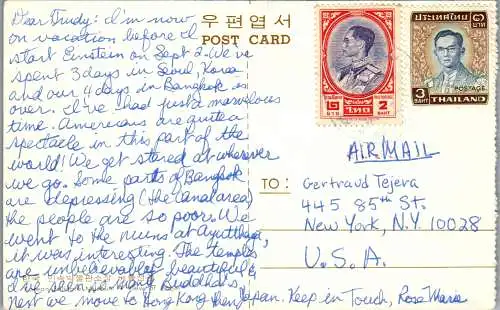 Dear Trudy: I'm now
on vacation before I
start Einstein on Sept 2. We've
spent 3 days in Seoul, Korea
and our 4 days in Bangkok is
over. I've had just a marvelous
time. Americans are quite a
spectacle in this part of the
world! We get stared at wherever
we go. Some parts of Bangkok
are depressing (the canal area)
the people are so poor. We
went to the ruins at Ayutthaya,
it was interesting. The temples
are unbelievably beautiful &
I've seen so many Buddha's,
next we move to Hong Kong then Japan. Keep in Touch, Rose Marie
우편엽서
POST CARD
๒
บาท
ไทย
2
BAHT
ประเทศไทย
๓
บาท
3
BAHT
POSTAGE
THAILAND
AIR MAIL
TO:
Gertraud Tejera
445 85th St.
New York, N.Y. 10028
U.S.A.